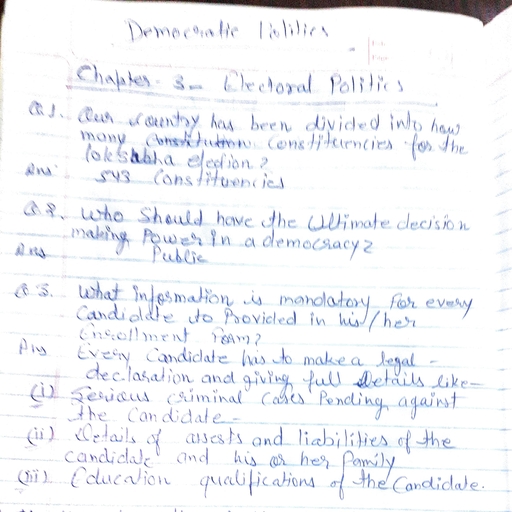 Democratic Politics
Chapter - 3 - Electoral Politics
Q 1. Our Country has been divided into how
many Constituencies for the
lok sabha election?
Ans. 543 Constituencies
Q 2. Who Should have the Ultimate decision
making Power in a democracy?
Ans Public
Q 3. What information is mandatory for every
Candidate to Provided in his/her
Enrollment Form?
Ans Every Candidate has to make a legal -
declaration and giving full Details like -
(i) Serious criminal Cases Pending against
the Candidate -
(ii) Details of assests and liabilities of the
candidate and his or her family
(iii) Education qualifications of the Candidate.